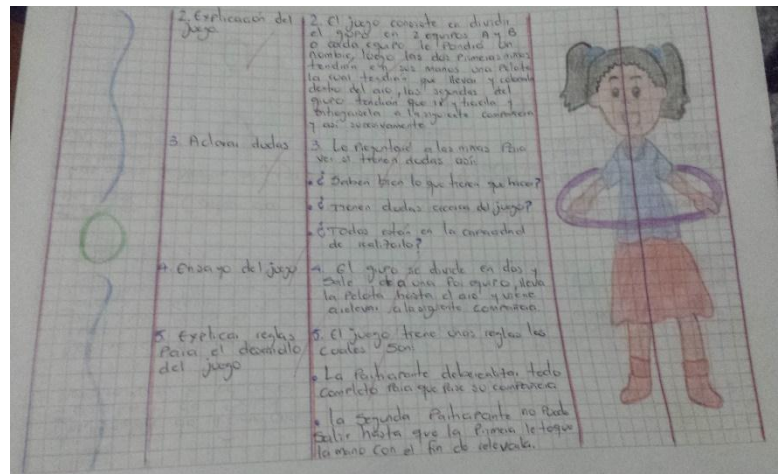 2. Explicación del
juego
2. El juego consiste en dividir
el grupo en 2 equipos A y B
a cada equipo le pondré un
nombre, luego las dos primeras niñas
tendrán en sus manos una Pelota
la cual tendrán que llevar y colocarla
dentro del aro, las segundas del
grupo tendrán que ir y traerla y
entregársela a la siguiente compañera
y así sucesivamente
3. Aclarar dudas
3. Le preguntaré a las niñas Para
ver si tienen dudas así:
• ¿Saben bien lo que tienen que hacer?
• ¿Tienen dudas acerca del juego?
• ¿Todas están en la capacidad
de realizarlo?
4. Ensayo del juego
4. El grupo se divide en dos y
sale una Por equipo, lleva
la Pelota hasta el aro y viene
a relevar a la siguiente compañera
5. Explicar reglas
Para el desarrollo
del juego
5. El juego tiene unas reglas las
cuales son:
• La Participante debe todo
completo Para que Pase su compañera
• La segunda Participante no Puede
Salir hasta que la Primera le toque
la mano con el fin de relevarla.